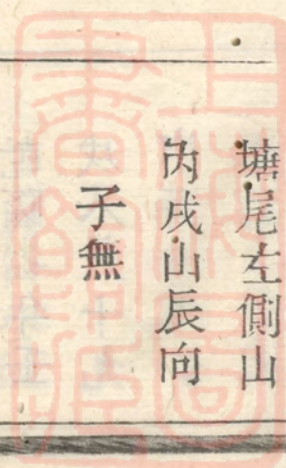 塘尾左側山
内戌山辰向
子無